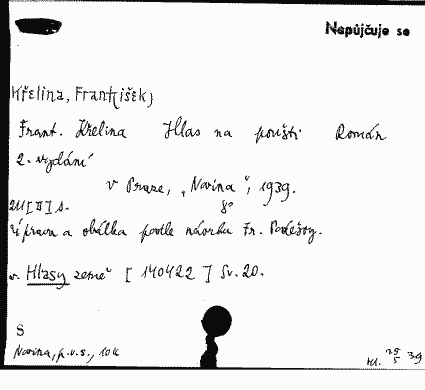 Nepůjčuje se
Křelina, František,
Frant. Křelina Hlas na poušti Román
2. vydání
V Praze, „Novina", 1939.
211 [II] s. 8°
Úprava a obálka podle návrhu Fr. Podešvy.
„Hlasy země" [ 140422 ] Sv. 20.
S
Novina, p.v.s., 10 k
25/5 39